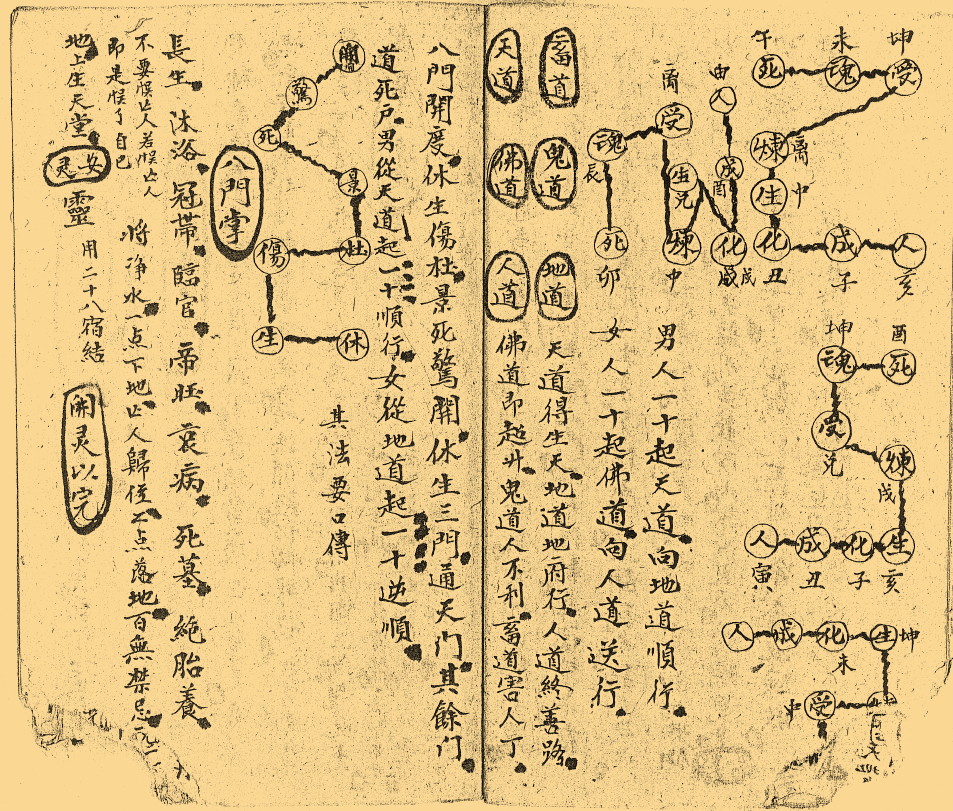 坤 未 午
受 魂 死
煉 离
生 中
化 成 人
丑 子 亥
坤 酉
魂 死
受 兑
煉 戌
生 化 成 人
亥 子 丑 寅
生 坤
化 未
成
人
受 中
由 人
成 酉
化
离 受
生 兑
煉 中
魂 長
死 卯
男人一十起天道向地道順行
女人一十起佛道向人道送行
畜道
鬼道
地道
天道
佛道
人道
天道得生天地道地府行人道終善路
佛道即超升鬼道人不利畜道害人丁
八門開度休生傷杜景死驚開休生三門通天門其餘门
道死戶男從天道起一十順行女從地道起一十逆順
開
驚
死
景
杜
傷
生
休
其法要口傳
八門掌
長生 沐浴 冠帶 臨官 帝旺 衰病 死墓 絶胎養
不要悮亡人若悮亡人
即是悮了自己
将净水一点下地亡人歸位不点落地百無禁忌
地上生天堂
安灵
靈 用二十八宿結
開灵以完